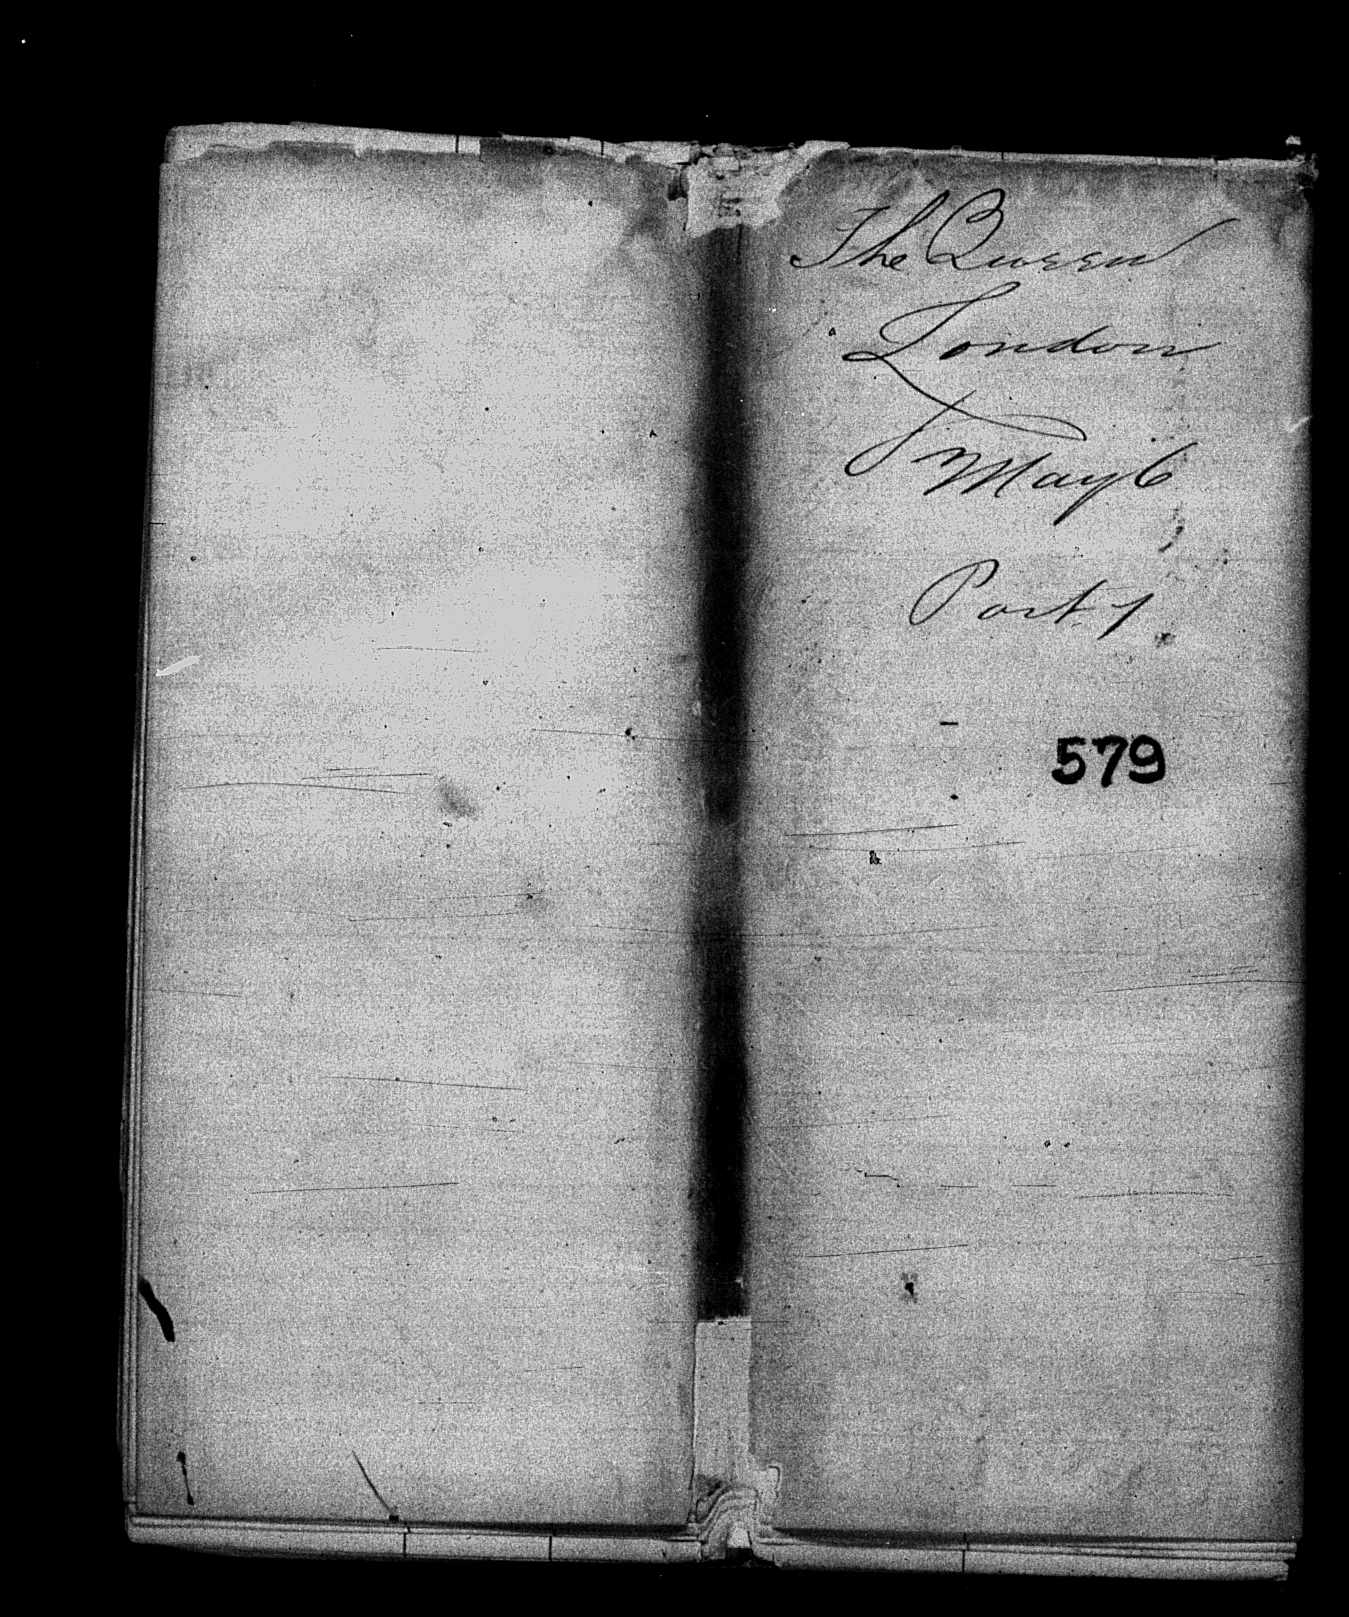 The Queen
London
May 6
Part. 1
579